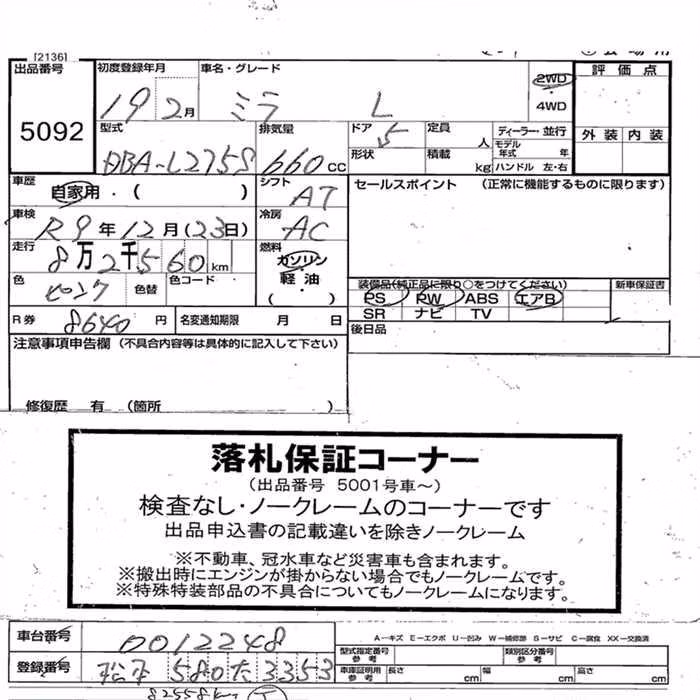 [2136]
出品番号 初度登録年月 車名・グレード 2WD 評価点
5092 19 2月 ミラ L 4WD
型式 排気量 ドア 定員 ディーラー・並行 外装 内装
DBA-L275S 660cc 5 人 モデル年式 年
形状 積載 kg ハンドル 左・右
車歴 自家用・( ) シフト AT セールスポイント (正常に機能するものに限ります)
車検 R9年12月(23日) 冷房 AC
走行 8万2千560km 燃料 ガソリン 軽油 ( )
色 ピンク 色替 色コード 装備品(純正品に限り○をつけてください) 新車保証書
PS PW ABS エアB
SR ナビ TV
R券 8640円 名変通知期限 月 日 後日品
注意事項申告欄 (不具合内容等は具体的に記入して下さい)
修復歴 有 (箇所 )
落札保証コーナー
(出品番号 5001号車～)
検査なし・ノークレームのコーナーです
出品申込書の記載違いを除きノークレーム
※不動車、冠水車など災害車も含まれます。
※搬出時にエンジンが掛からない場合でもノークレームです。
※特殊特装部品の不具合についてもノークレームになります。
車台番号 0012248 A－キズ E－エクボ U－凹み W－補修跡 S－サビ C－腐食 XX－交換済
型式指定番号 参考 類別区分番号 参考
登録番号 580 3353 車庫証明用 参考 長さ cm 幅 cm 高さ cm
82558km